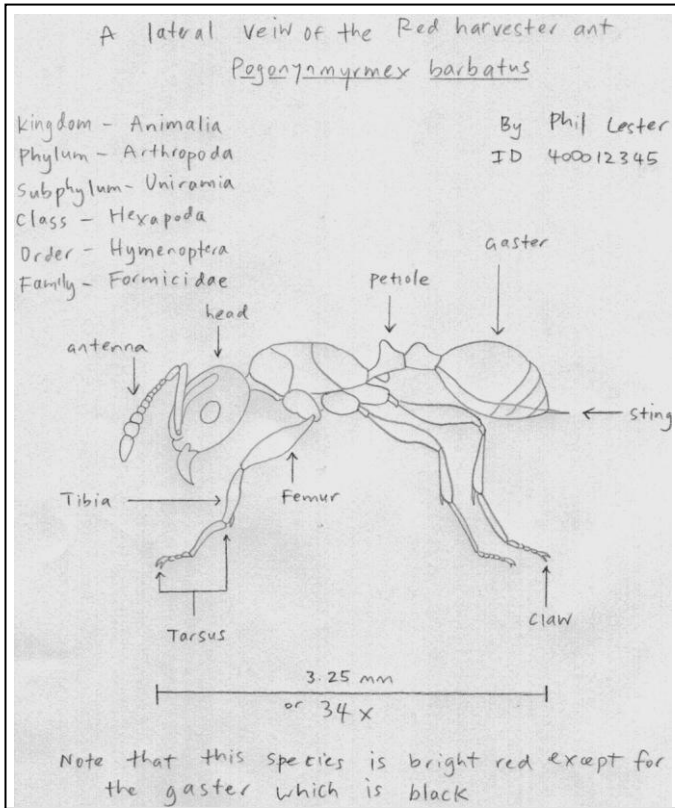 A lateral veiw of the Red harvester ant
Pogonynmyrmex barbatus
Kingdom - Animalia
Phylum - Arthropoda
Subphylum - Uniramia
Class - Hexapoda
Order - Hymenoptera
Family - Formicidae
By Phil Lester
ID 400012345
gaster
petiole
head
antenna
sting
Tibia
Femur
Tarsus
claw
3.25 mm
or 34 x
Note that this species is bright red except for
the gaster which is black